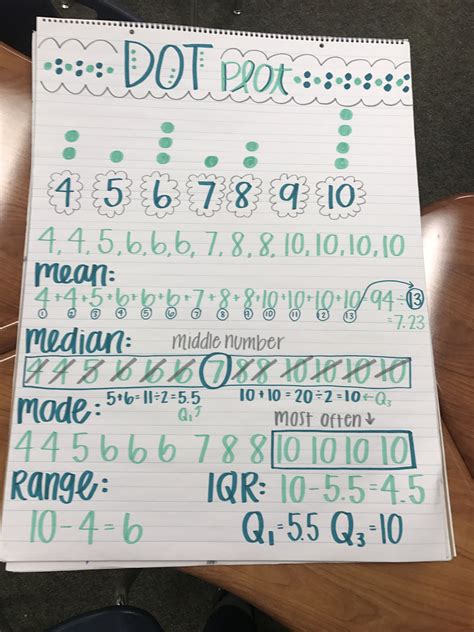 DOT Plot
4 5 6 7 8 9 10
4, 4, 5, 6, 6, 6, 7, 8, 8, 10, 10, 10, 10
mean:
4+4+5+6+6+6+7+8+8+10+10+10+10=94÷13
1 2 3 4 5 6 7 8 9 10 11 12 13
=7.23
Median: middle number
4 4 5 6 6 6 7 8 8 10 10 10 10
5+6=11÷2=5.5 10+10=20÷2=10←Q3
Mode: Q1↑ most often ↓
4 4 5 6 6 6 7 8 8 10 10 10 10
Range: IQR: 10-5.5=4.5
10-4=6 Q1=5.5 Q3=10